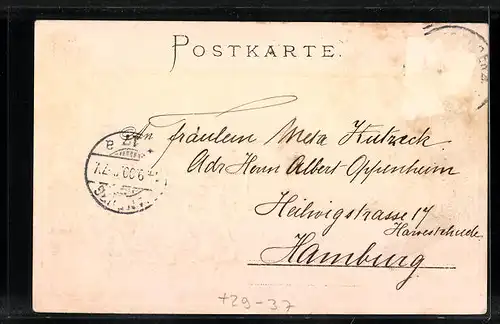 POSTKARTE.
An
Fräulein Meta Kutzeck
Adr Herrn Albert Oppenheim
Heilwigstrasse 17
Harvestehude
Hamburg
+29-37